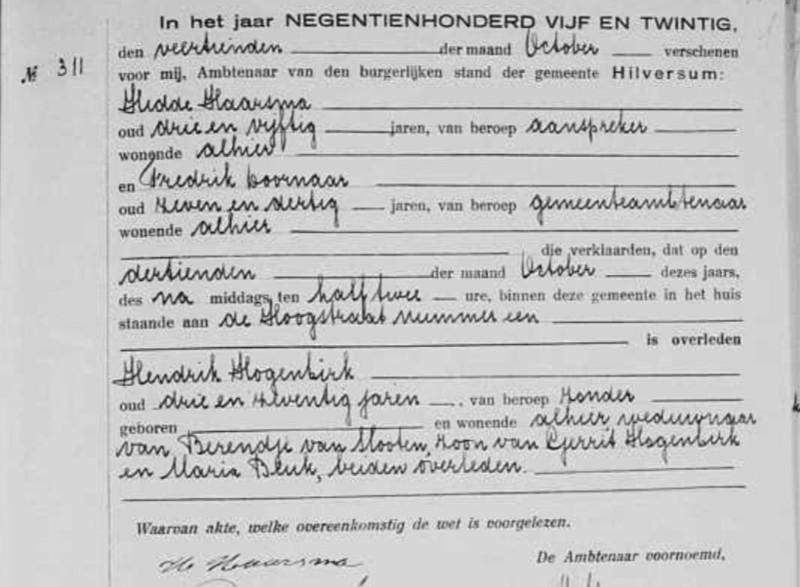 In het jaar NEGENTIENHONDERD VIJF EN TWINTIG,
den veertienden der maand October verschenen
№ 311
voor mij, Ambtenaar van den burgerlijken stand der gemeente Hilversum:
Hidde Haarsma
oud drie en vijftig jaren, van beroep aanspreker
wonende alhier
en Fredrik Voornaar
oud zeven en dertig jaren, van beroep gemeenteambtenaar
wonende alhier
die verklaarden, dat op den
dertienden der maand October dezes jaars,
des na middags ten half twee ure, binnen deze gemeente in het huis
staande aan de Hoogstraat nummer een
is overleden
Hendrik Hogenbirk
oud drie en zeventig jaren, van beroep zonder
geboren en wonende alhier weduwnaar
van Berendje van Slooten, zoon van Gerrit Hogenbirk
en Maria, beiden overleden.
Waarvan akte, welke overeenkomstig de wet is voorgelezen.
H. Haarsma
De Ambtenaar voornoemd,